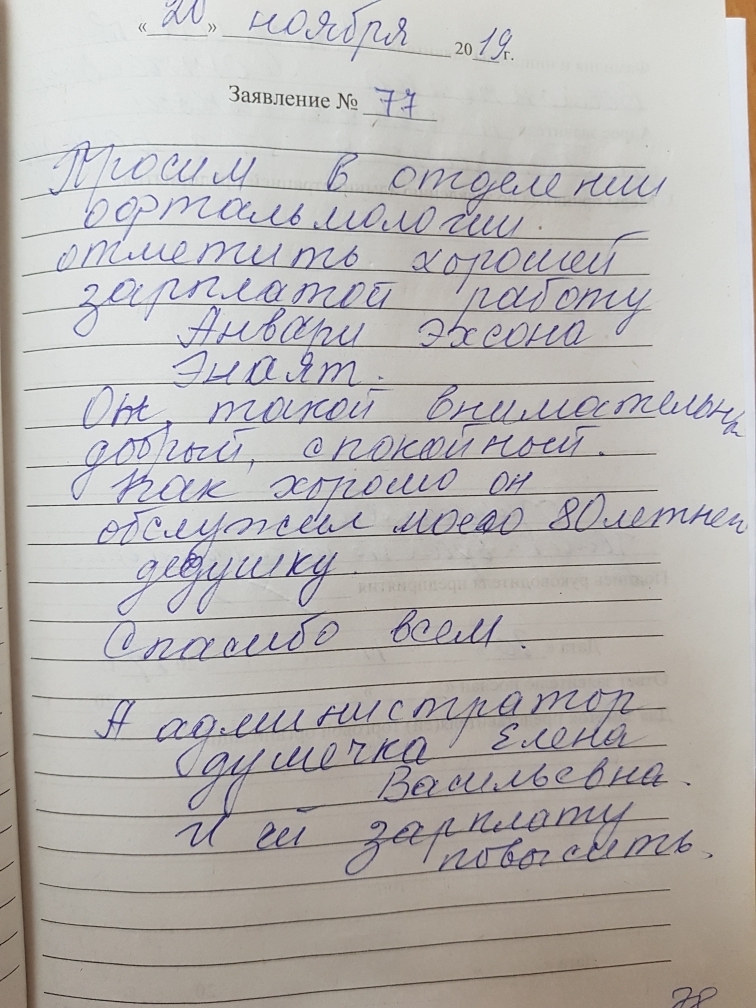 «20» ноября 2019г.
Заявление № 77
Просим в отделении
офтальмологии
отметить хорошей
зарплатой работу
Анвари Эхсона
Энаят.
Он, такой внимательны
добрый, спокойный.
Как хорошо он
обслужил моего 80летнег
дедушку.
Спасибо всем.
А администратор
душечка Елена
Васильевна.
И ей зарплату
повысить.
78